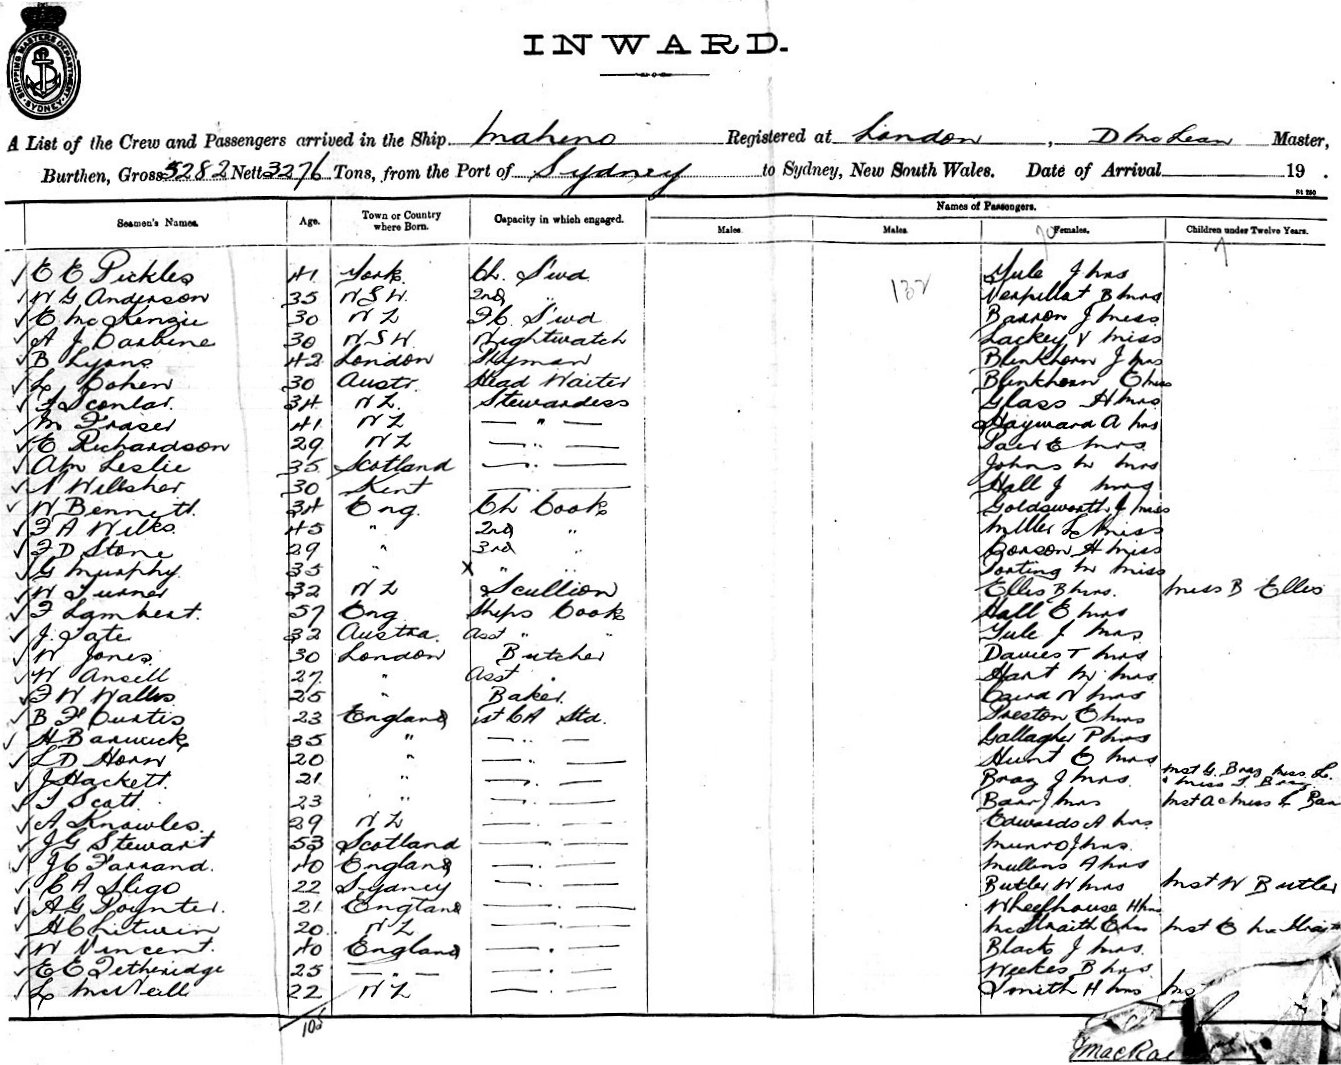 SHIPPING MASTERS DEPARTMENT SYDNEY
INWARD.
A List of the Crew and Passengers arrived in the Ship Maheno Registered at London, D McLean Master,
Burthen, Gross 5282 Nett 3276 Tons, from the Port of Sydney to Sydney, New South Wales. Date of Arrival 19 .
Names of Passengers.
Seamen's Names. Age. Town or Country where Born. Capacity in which engaged. Males. Males. Females. Children under Twelve Years.
E E Pickles 41 York Ch. S'wd Yule J Mrs
W G Anderson 35 NSW. 2nd " Verpillat B Mrs
E McKenzie 30 NZ S'wd Barron J Miss
A J Carbine 30 NSW. Nightwatch Lackey V Miss
B Lyons 42 London Blinkhorn J Mrs
L Cohen 30 Austr. Head Waiter Blinkhorn E Miss
34 NZ Stewardess Glass H Mrs
M Fraser 41 NZ — " — Hayward A Mrs
E Richardson 29 NZ — " — E Mrs
A M Leslie 35 Scotland — " — Johns M Mrs
N Willsher 30 Kent — " — Hall J Mrs
W Bennett 34 Eng Ch Cook Goldsworth J Miss
F A Wilks 45 " 2nd " Miller L Miss
F D Stone 29 " 3rd " H Miss
G Murphy 35 X " " M Miss
W Turner 32 NZ Scullion Ellis B Mrs. Miss B Ellis
F Lambert. 57 Eng Ships Cook Hall E Mrs
J. Tate 32 Austra. Asst " " Yule J Mrs
W Jones 30 London Butcher Davies T Mrs
W Ansell 27 " Asst " Hart M Mrs
F W Wallis 25 " Baker Caird N Mrs
B F Curtis 23 England 1st CA Std. Preston E Mrs
H Barwick 35 " — " — Gallagher P Mrs
L D Horn 20 " — " — Hunt E Mrs
J Hackett 21 " — " — Bray J Mrs. Mst G. Bray Miss L. & Miss F Bray
T Scott 23 " — " — Barr J Mrs Mst A & Miss L Barr
A Knowles 29 NZ — " — Edwards A Mrs
J G Stewart 53 Scotland — " — Munro J Mrs.
J C Farrand. 40 England — " — Mullens A Mrs
C A Sligo 22 Sydney — " — Butler W Mrs Mst W Butler
A G Poynter. 21 England — " — Wheelhouse H Mrs
H Chitwin 20 NZ — " — McIlwraith E Mrs Mst E
W Vincent. 40 England — " — Black J Mrs.
E E Tetheridge 25 — " — — " — Weekes B Mrs
L McNeill 22 NZ — " — Smith H Mrs
MacRae